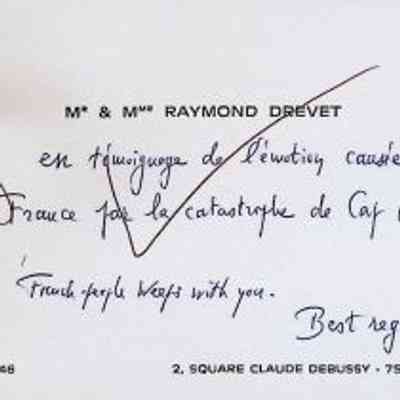 Mr & Mme RAYMOND DREVET
en témoignage de l'émotion causée
France par la catastrophe de Cap
French people weeps with you.
Best reg
46
2, SQUARE CLAUDE DEBUSSY - 75